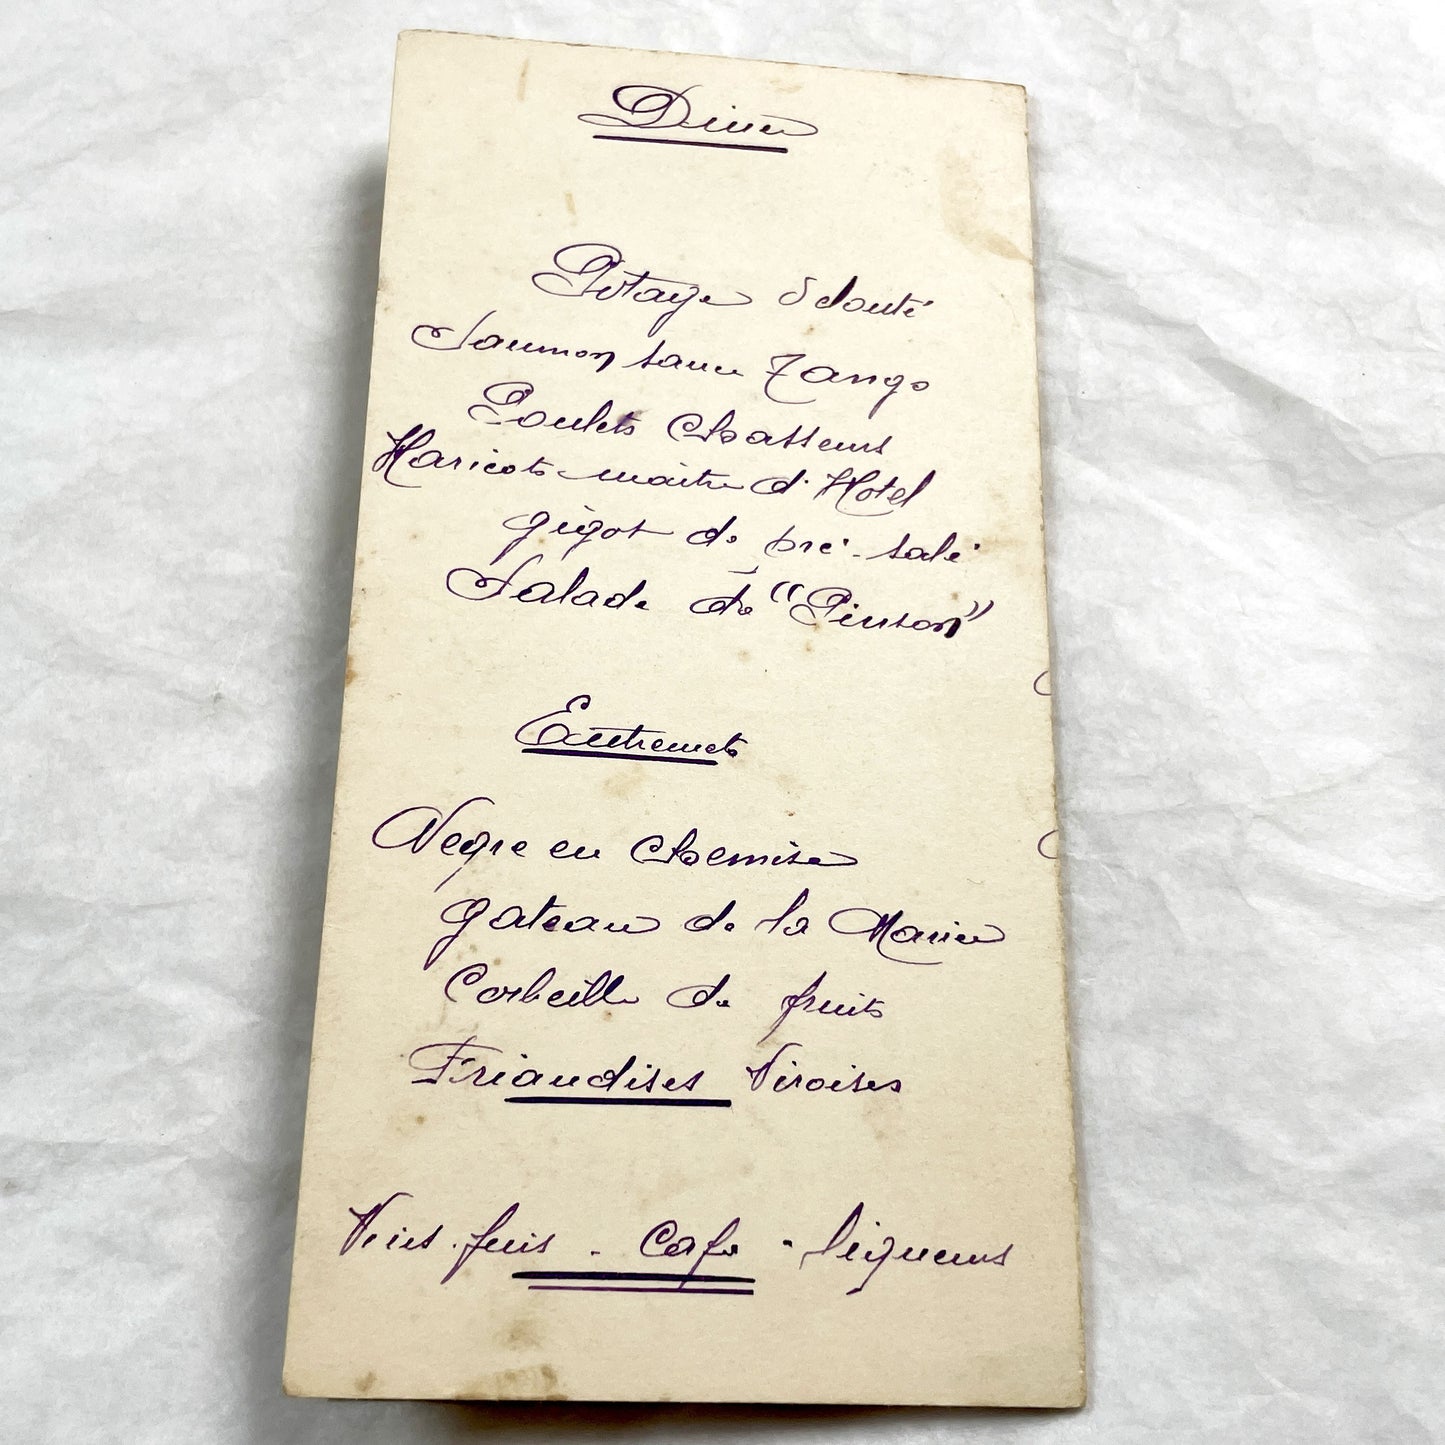 Diner
Potage Velouté
Saumon sauce Tango
Poulets Chasseurs
Haricots maitre d'Hotel
gigot de pré-salé
Salade de "Pinson"
Entremets
Negre en Chemise
gateau de la Mariée
Corbeille de fruits
Friandises Viroises
Vins fins - Café - liqueurs